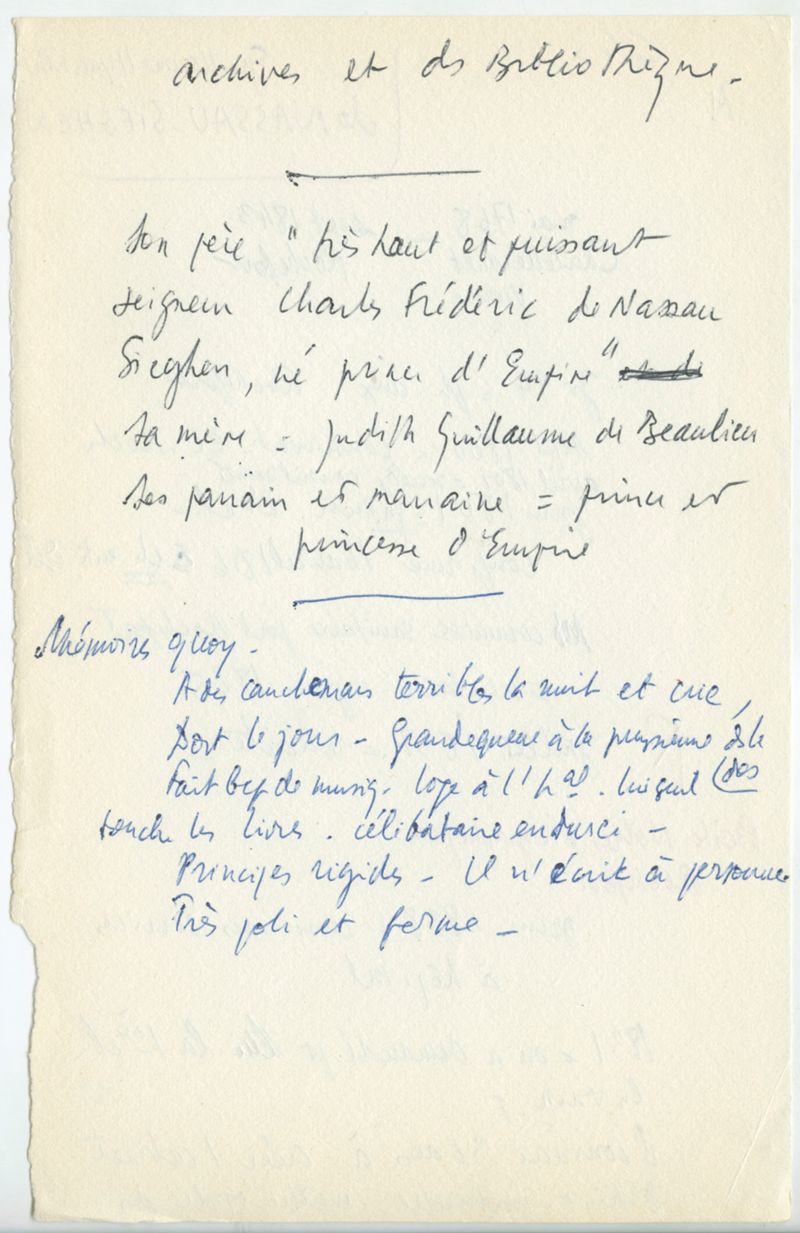 archives et des Bibliothèque -
Son père "très haut et puissant
seigneur Charles Frédéric de Nassau
Sieghen, né prince d'Empire"
Sa mère = Judith Guillaume de Beaulieu
Ses parrain et marraine = prince et
princesse d'Empire
Mémoires Quoy -
A des cauchemars terribles la nuit et crie,
Dort le jour - Grande queue à la prussienne
Fait bcp de musiq - loge à l'hal - lui seul (dos
touche les livres - célibataire endurci -
Principes rigides - Il n'écrit à personne
Très poli et ferme -